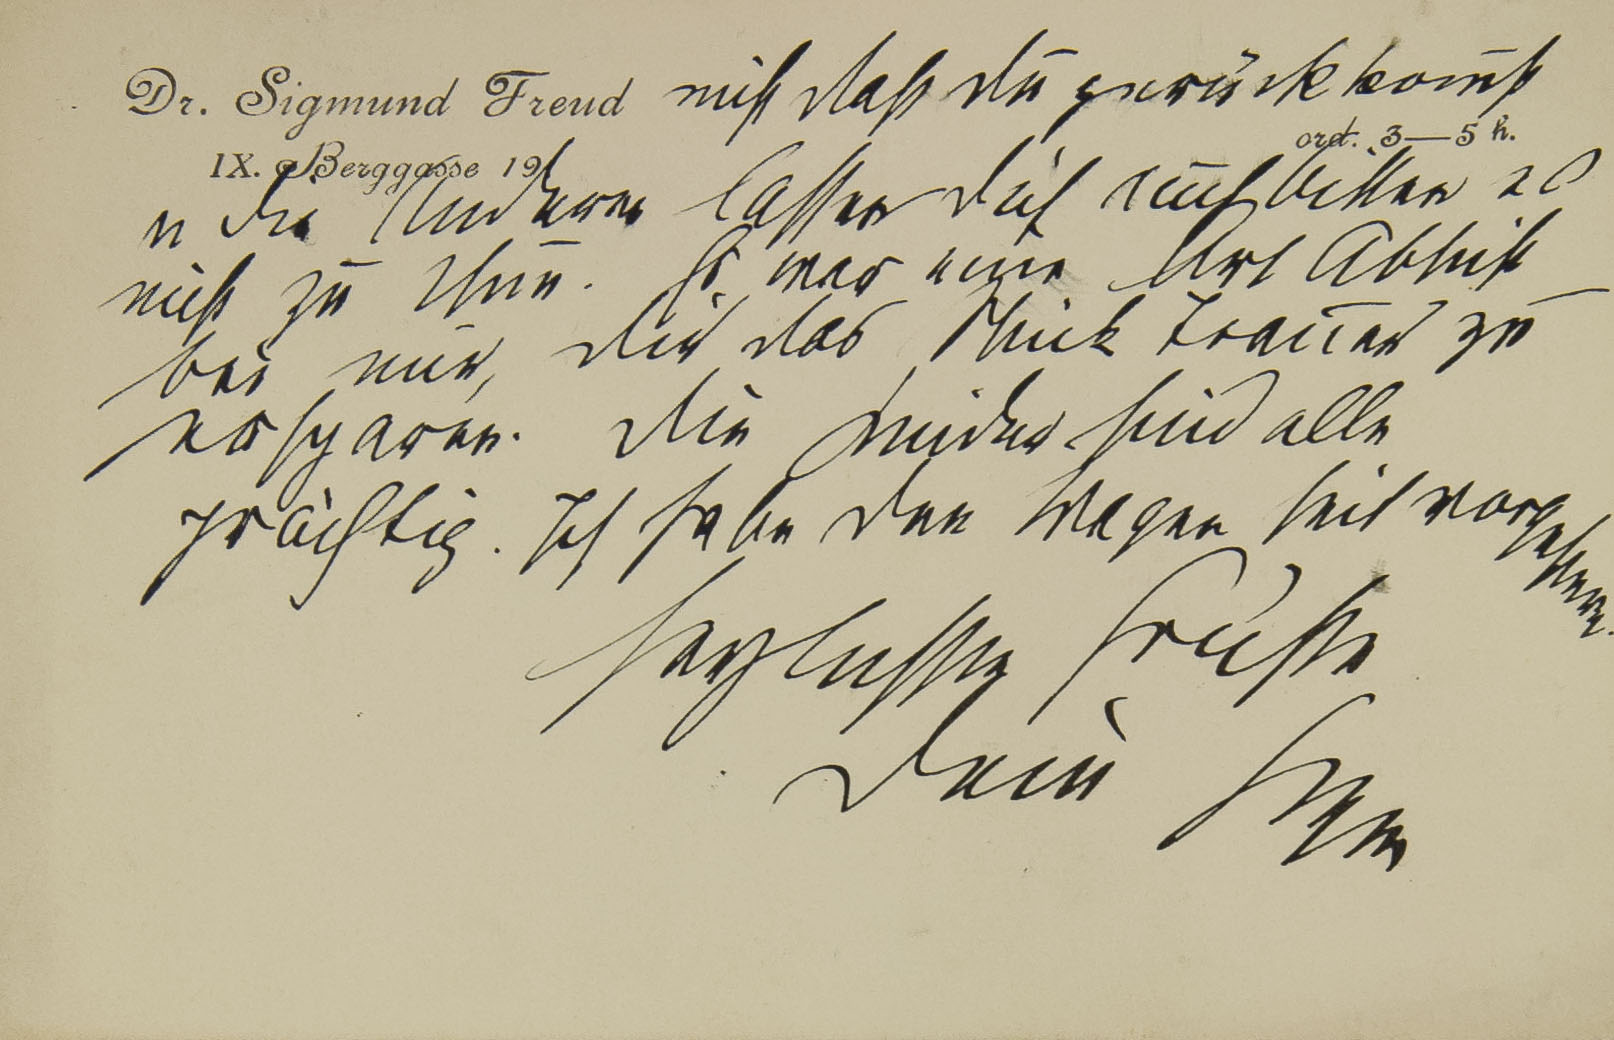 Dr. Sigmund Freud nicht daß du zurückkom̄st
ord. 3—5 h.
IX. Berggasse 19
u die Anderen lassen dich auch bitten es
nicht zu thun. Es war eine Art Absicht
bei mir, dir das Stück Trauer zu
ersparen. Die Kinder sind alle
prächtig. Ich habe den Wagen seit vorgestern.
Herzlichste Grüße
Dein